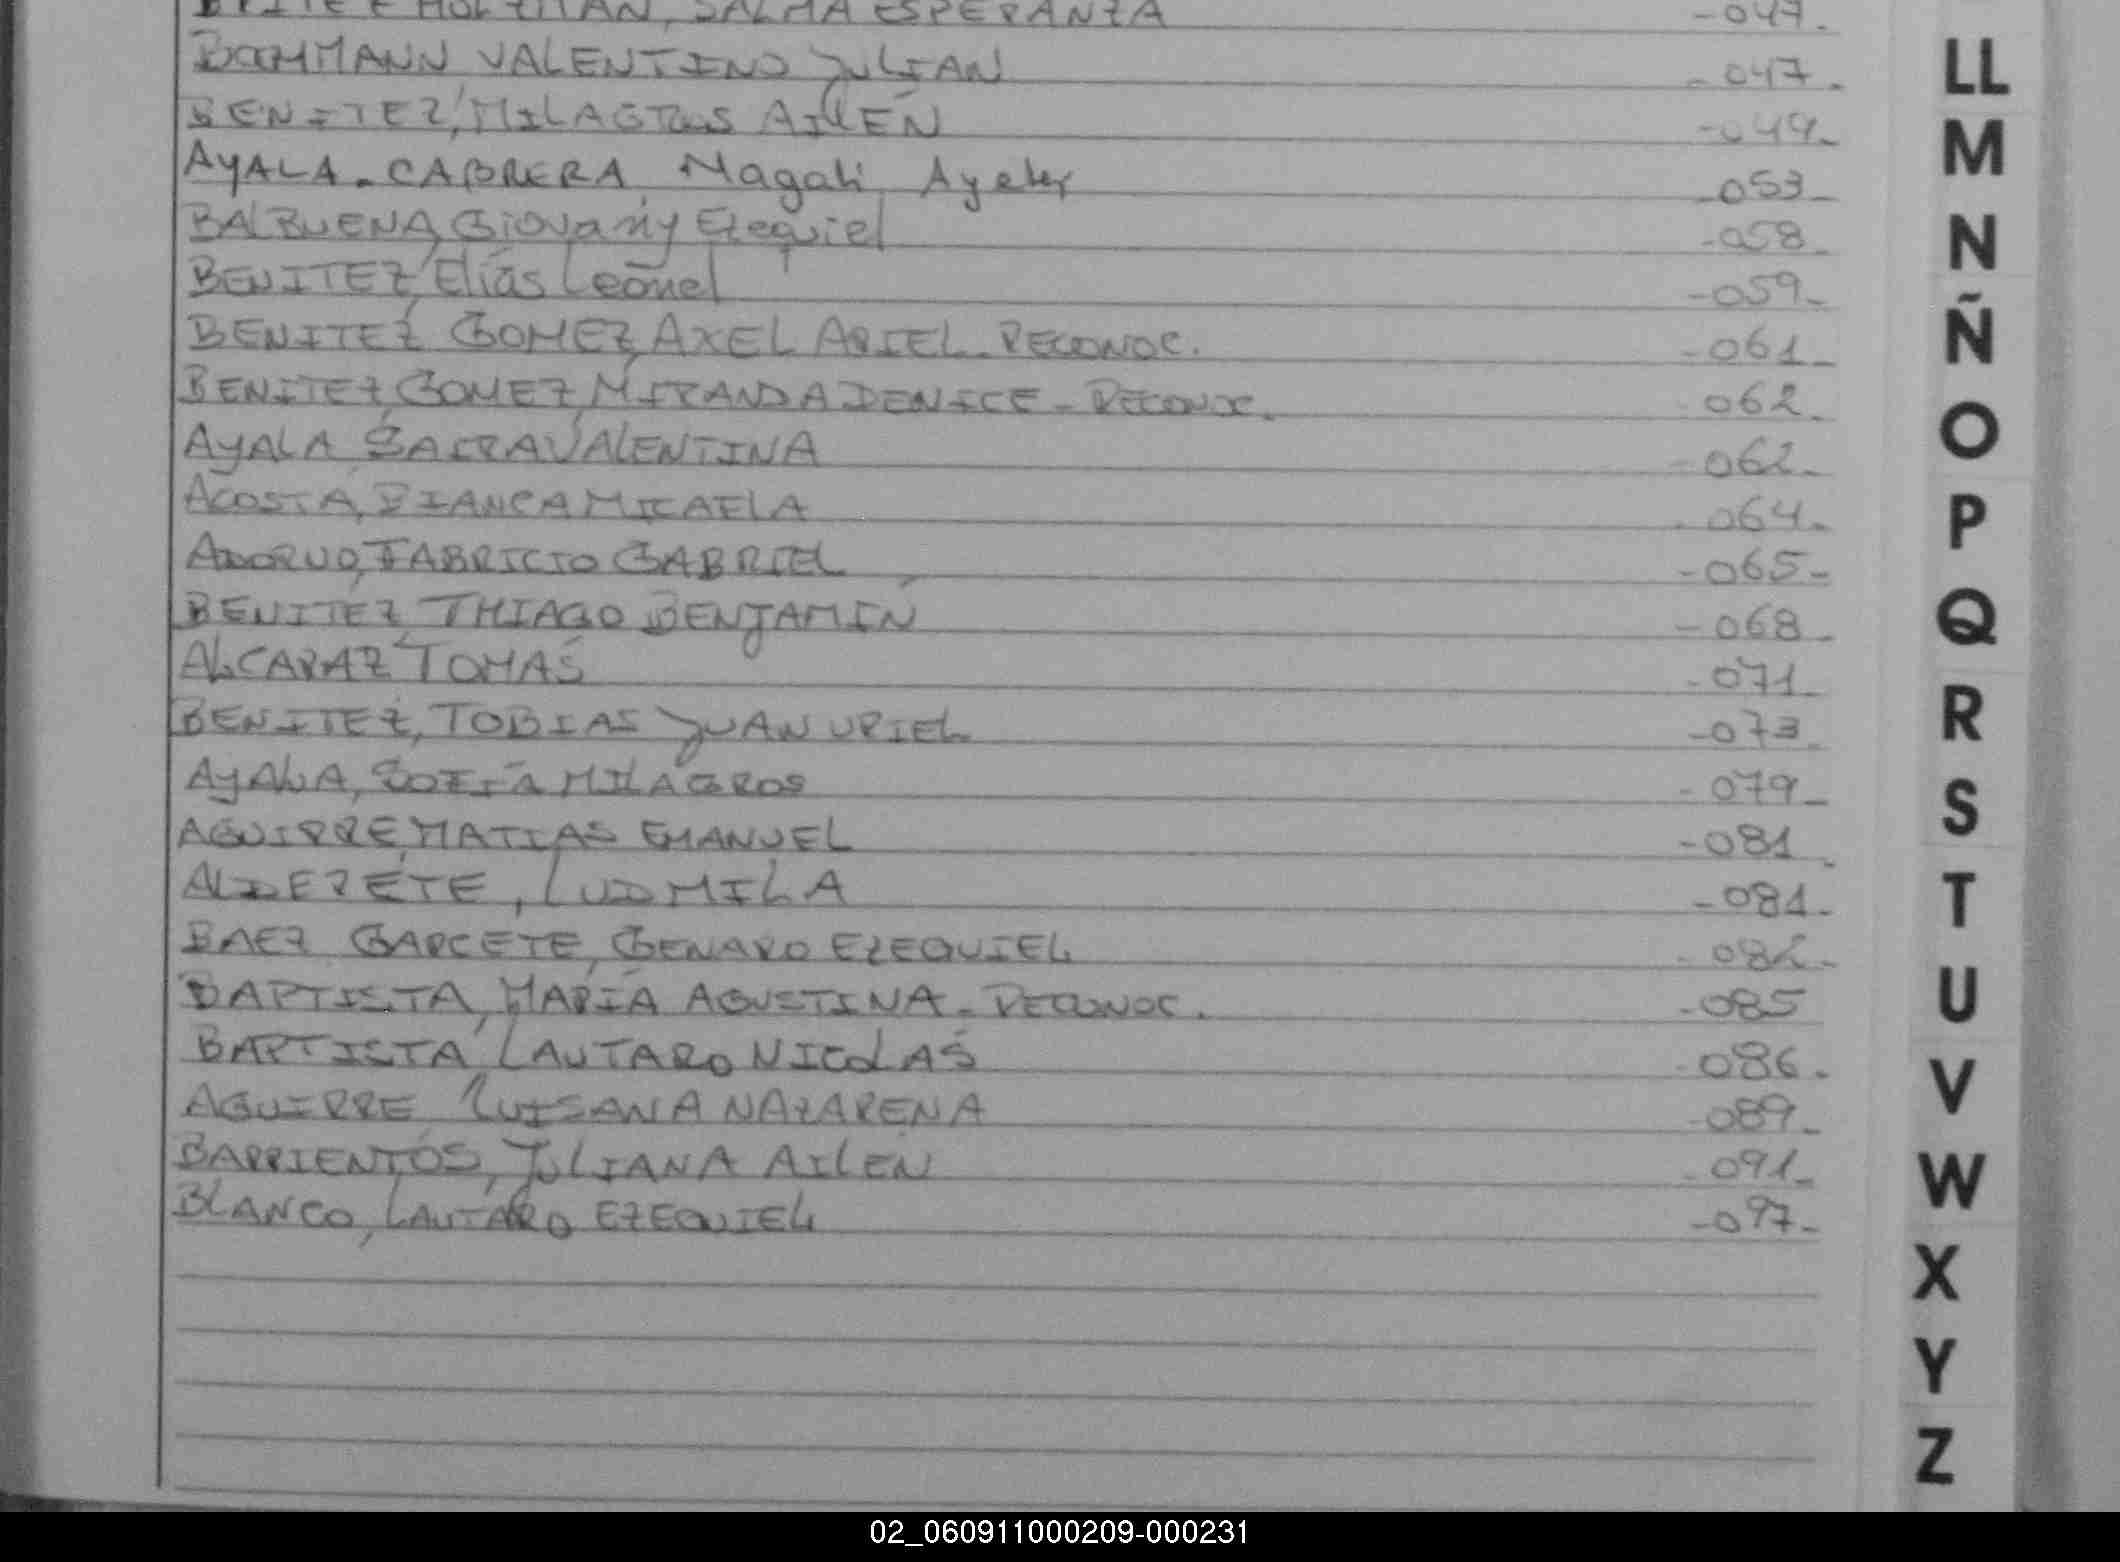 HOLTMAN, SALMA ESPERANZA -047-
BOHMMANN VALENTINO JULIAN -047-
BENITEZ, MILAGROS AILÉN -049-
AYALA-CABRERA, Magali Ayelen -053-
BALBUENA, Giovanny Ezequiel -058-
BENITEZ, Elías Leonel -059-
BENITEZ GOMEZ, AXEL ARIEL-RECONOC. -061-
BENITEZ GOMEZ, MIRANDA DENICE-RECONOC. 062-
AYALA, SAIRA VALENTINA -062-
ACOSTA, BIANCA MICAELA 064-
ADORNO, FABRICIO GABRIEL -065-
BENITEZ THIAGO BENJAMÍN -068-
ALCARAZ, TOMÁS -071-
BENITEZ, TOBIAS JUAN URIEL -073-
AYALA, SOFÍA MILAGROS -079-
AGUIRRE, MATIAS EMANUEL -081-
ALDERETE, LUDMILA -081-
BAEZ GARCETE, GENARO EZEQUIEL -082-
BAPTISTA, MARÍA AGUSTINA-RECONOC. -085
BAPTISTA, LAUTARO NICOLÁS -086-
AGUIRRE LUISANA NAZARENA -089-
BARRIENTOS, JULIANA AILEN -091-
BLANCO, LAUTARO EZEQUIEL -097-
LL
M
N
Ñ
O
P
Q
R
S
T
U
V
W
X
Y
Z
02_060911000209-000231